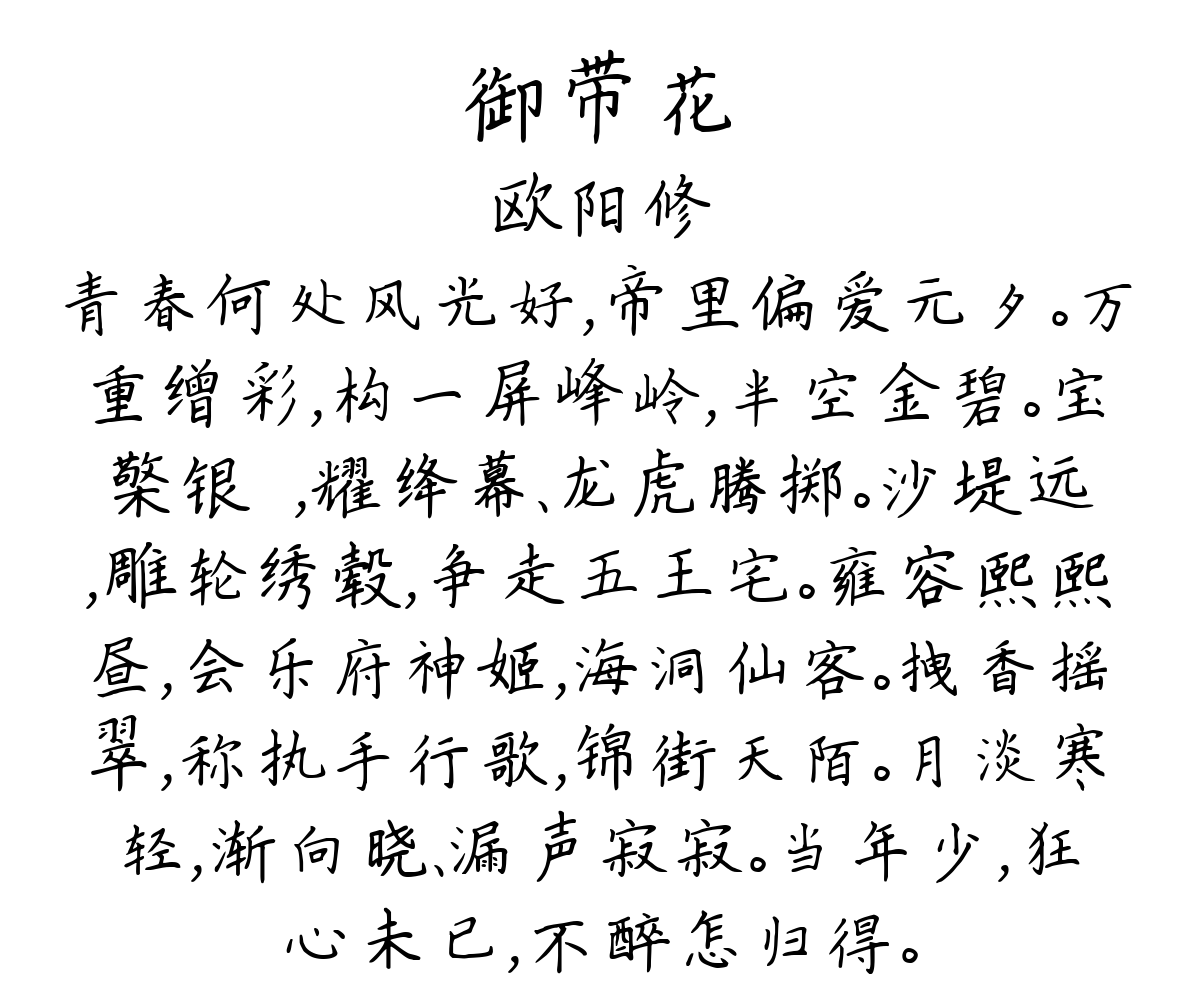 御带花
欧阳修
青春何处风光好,帝里偏爱元夕。万
重缯彩,构一屏峰岭,半空金碧。宝
檠银 ,耀绛幕、龙虎腾掷。沙堤远
,雕轮绣毂,争走五王宅。雍容熙熙
昼,会乐府神姬,海洞仙客。拽香摇
翠,称执手行歌,锦街天陌。月淡寒
轻,渐向晓、漏声寂寂。当年少,狂
心未已,不醉怎归得。